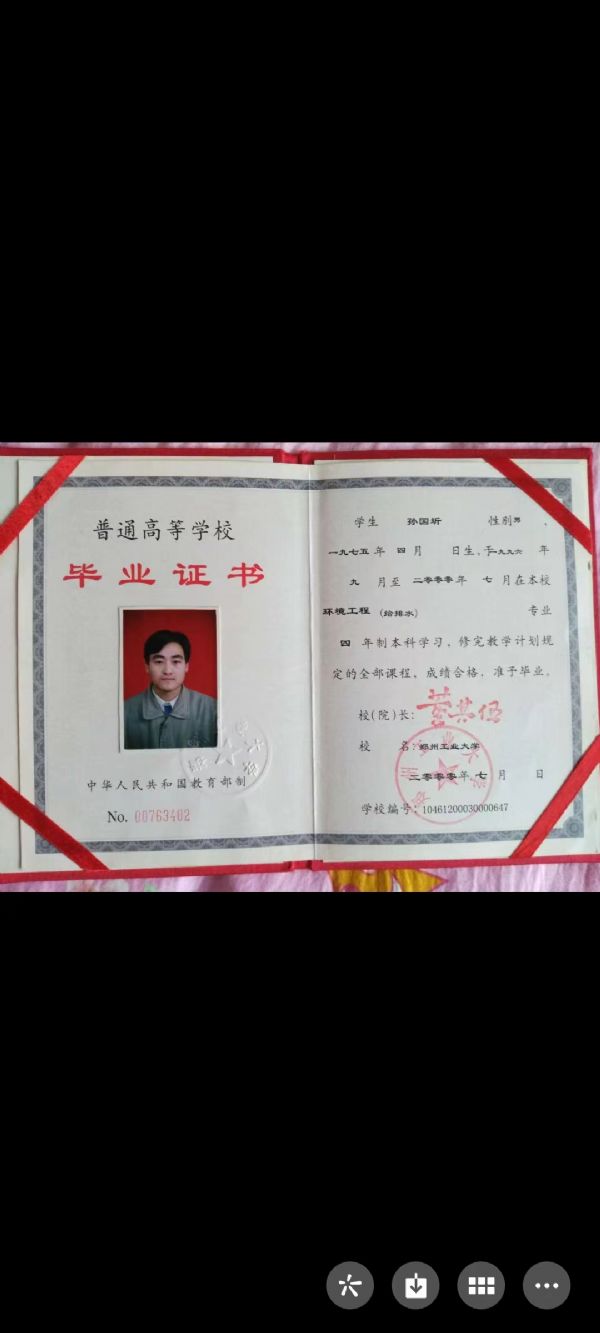 普通高等学校
毕业证书
中华人民共和国教育部制
No. 00763402
学生 孙国圻 性别 男 、
一九七五 年 四 月 日生，于 一九九六 年
九 月至 二零零零 年 七 月在本校
环境工程（给排水） 专业
四 年制本科学习，修完教学计划规
定的全部课程，成绩合格，准予毕业。
校(院)长：
校 名：郑州工业大学
二零零零 年 七 月 日
学校编号：10461200030000647